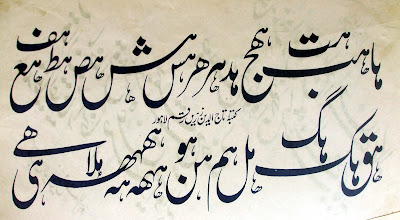 ہا ہب ہت ہج ہد ہر ہر ہس ہش ہص ہط ہع ہف
کتبہ تاج الدین زریں رقم لاہور
ہق ہک ہگ ہل ہم ہن ہو ہہ ہلا ہی ہے